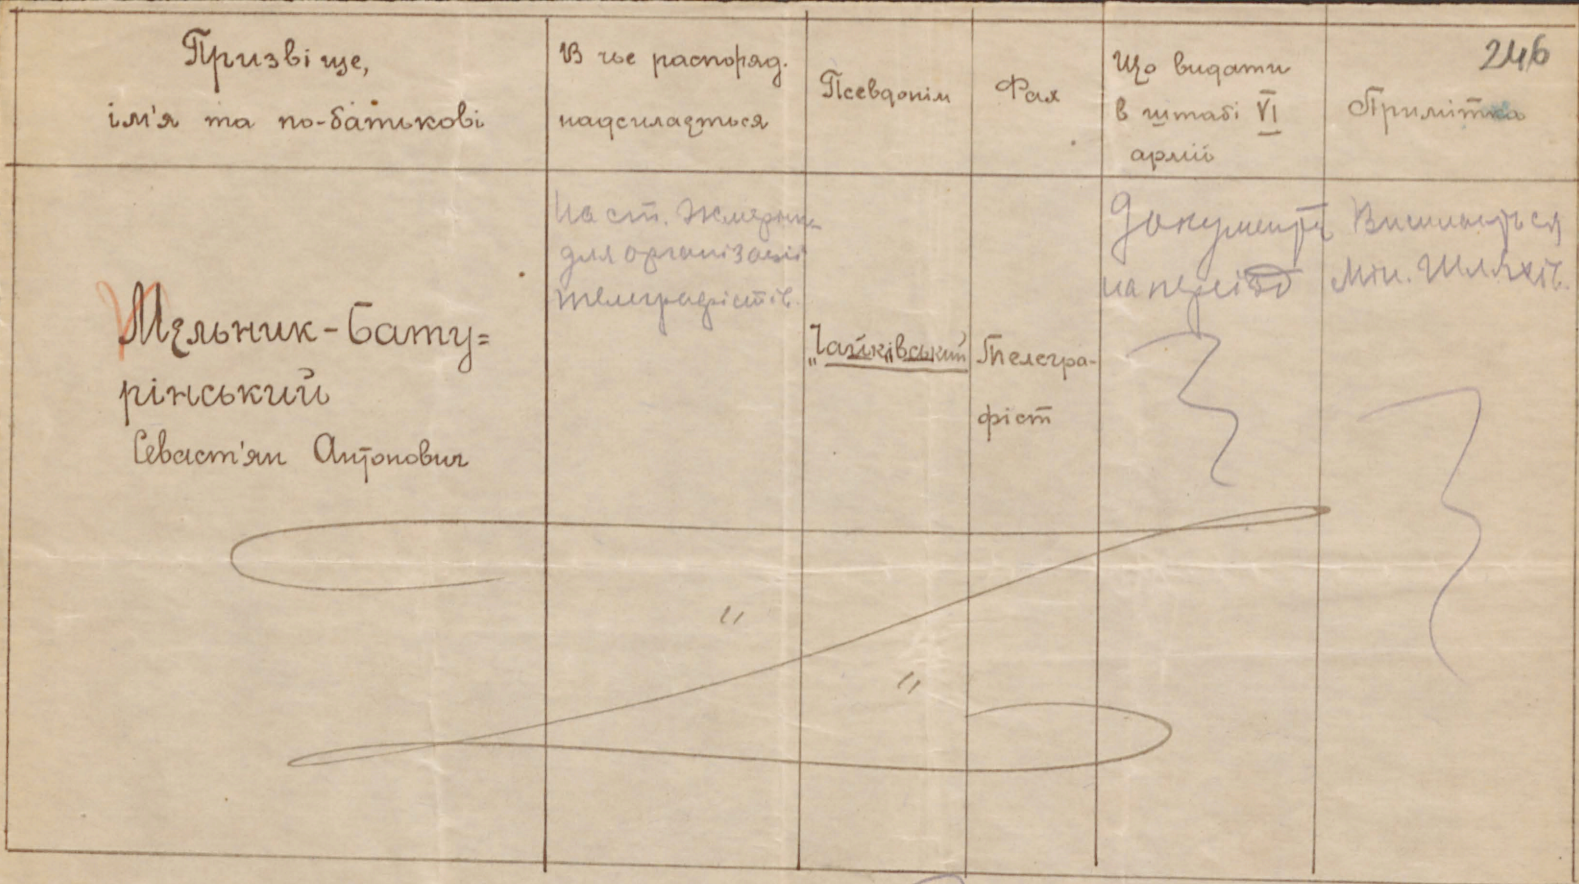 246
Призвіще,
ім'я та по-батькові
В чье распоряд.
надсилається
Псевдонім
Фах
Що видати
в штабі VI
армії
Примітка
Мельник-Бату=
рінський
Севаст'ян Антонович
На ст. Жмеринк-
для організації
телеграфістів.
„Чайківський"
Телегра-
фіст
Документи
на переїзд
Висилається
Мін. Шляхів.
"
"